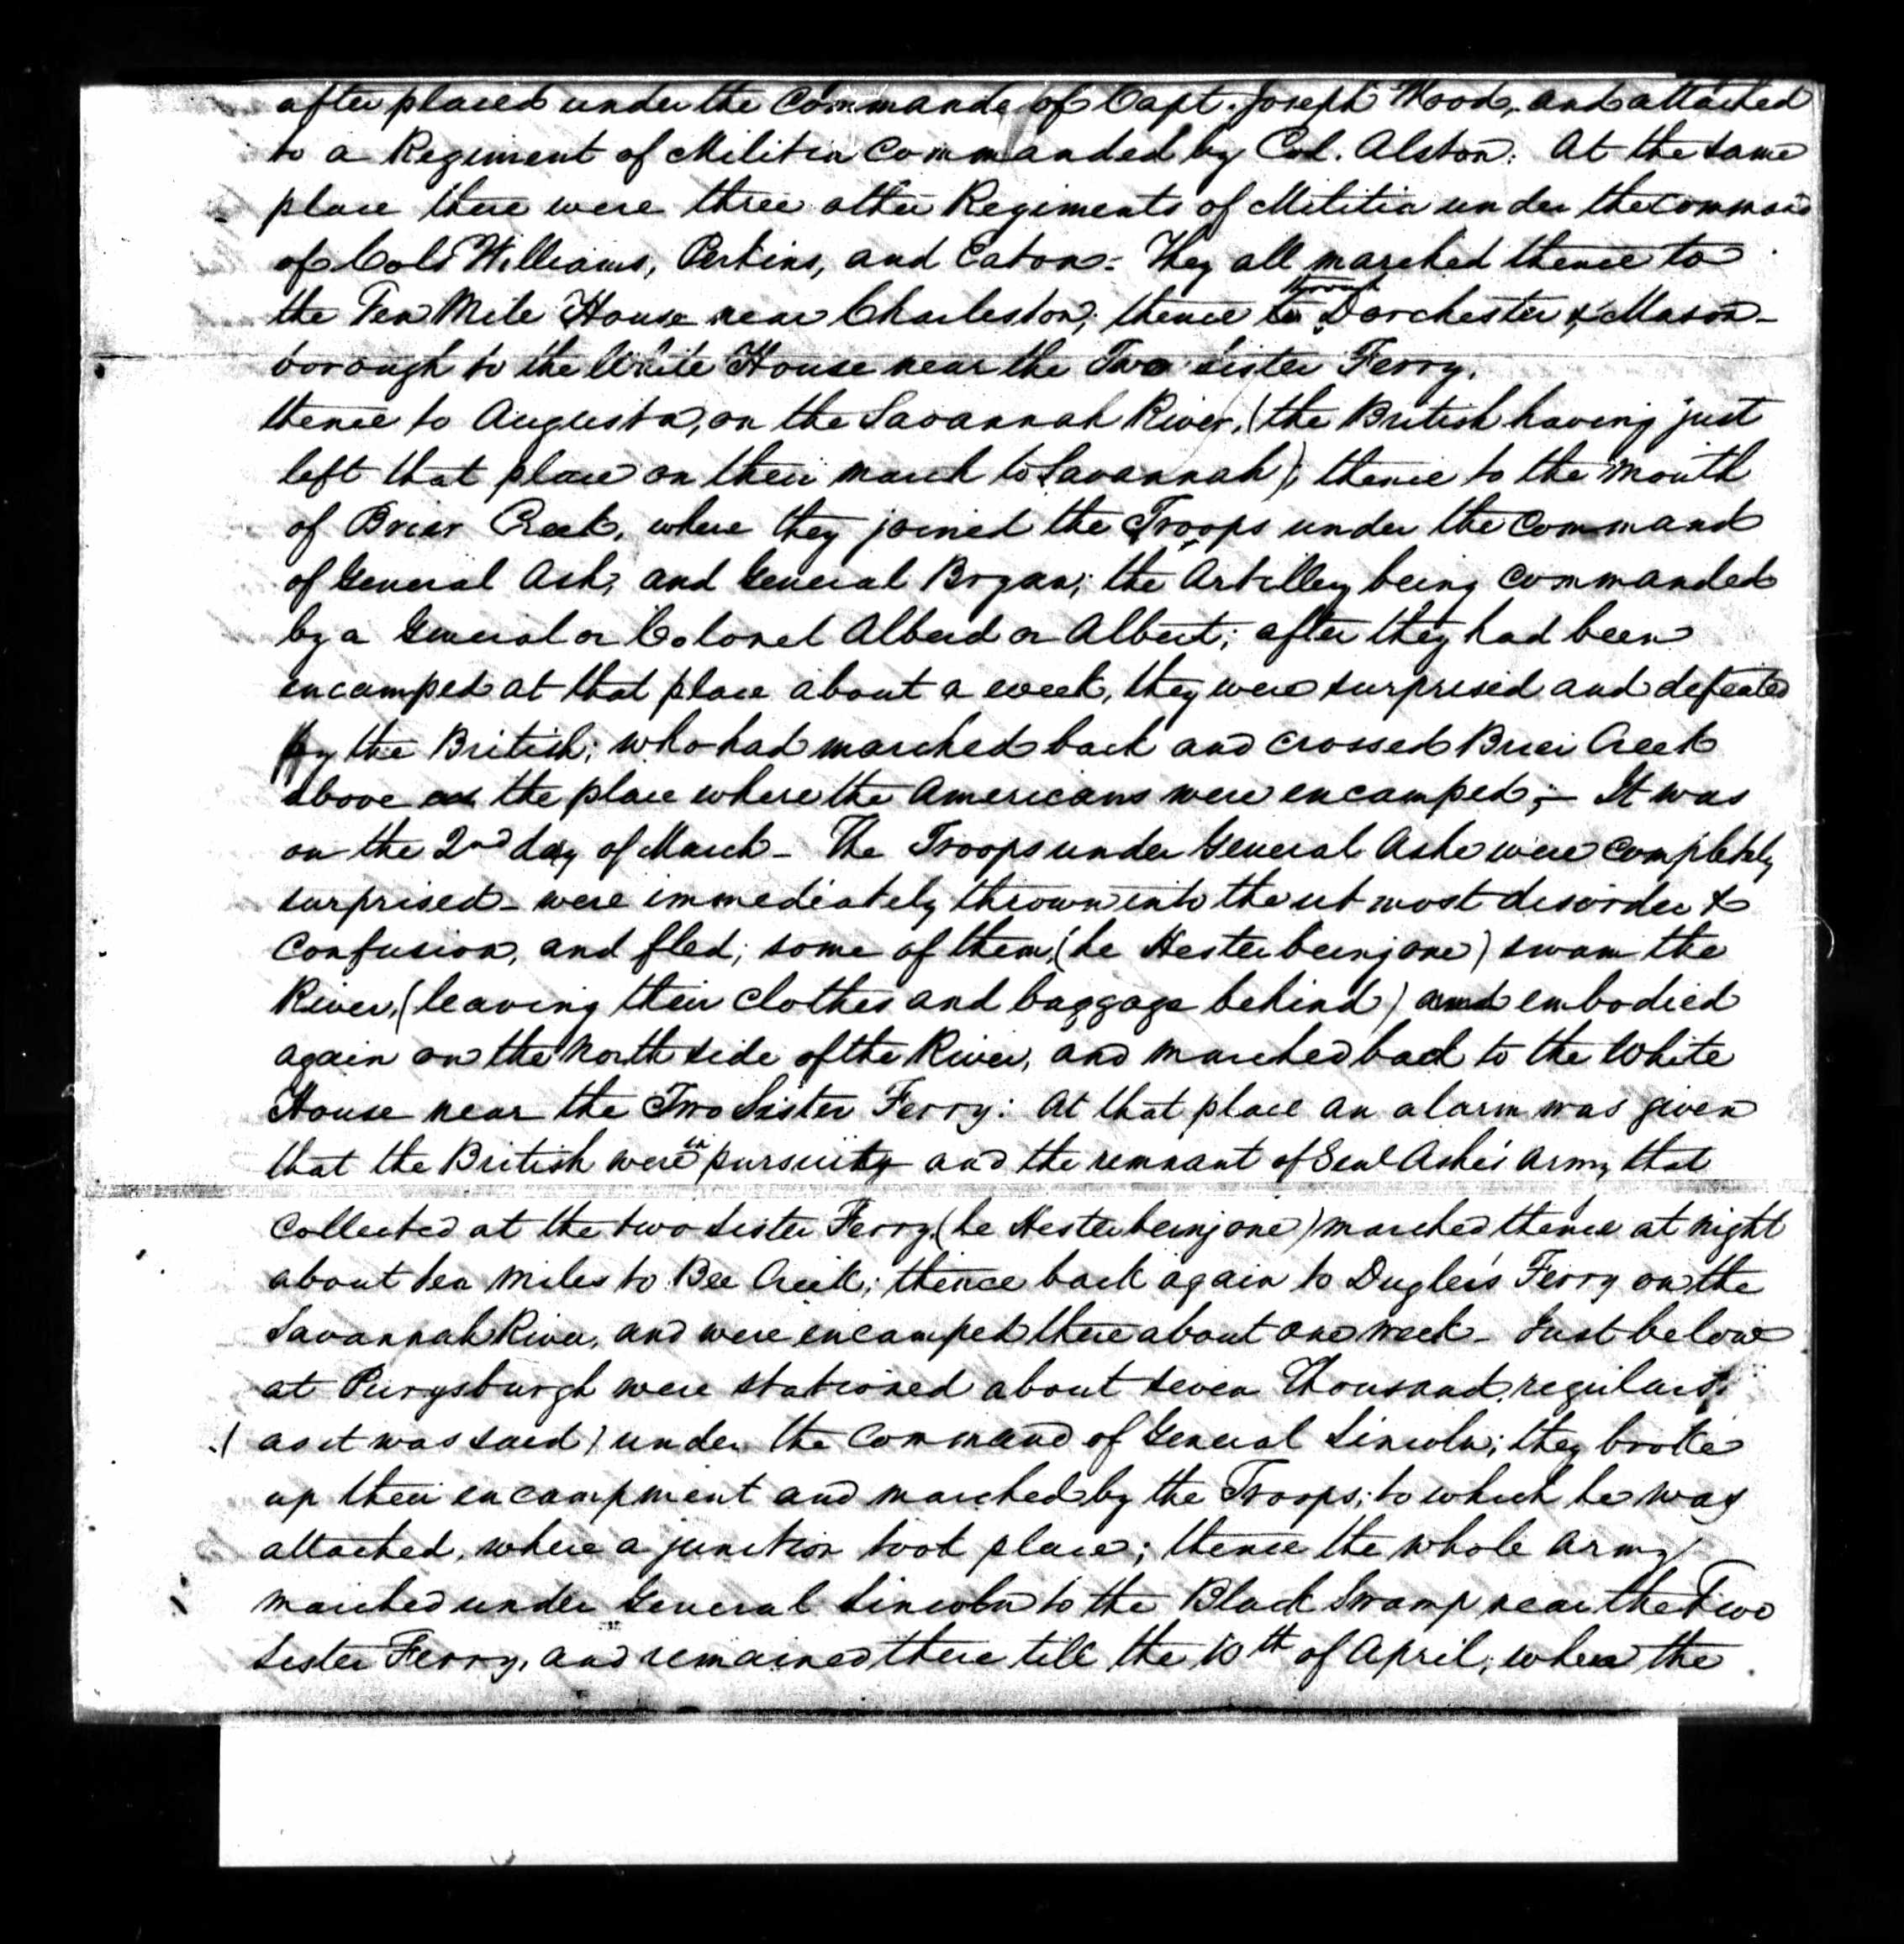 after placed under the Commande of Capt. Joseph Wood, and attached
to a Regiment of Militia Commanded by Col. Alston: At the same
place there were three other Regiments of Militia under the command
of Cols Williams, Perkins, and Eaton - They all marched thence to
the Ten Mile House near Charleston; thence through Dorchester & Mason-
borough to the White House near the Two Sister Ferry.
thence to Augusta, on the Savannah River, (the British having just
left that place on their march to Savannah); thence to the mouth
of Brier Creek, where they joined the Troops under the Command
of General Ash, and General Bryan; the Artilley being Commanded
by a General or Colonel Alberd or Albert; after they had been
encamped at that place about a week, they were surprised and defeated
by the British; who had marched back and crossed Brier Creek
above the place where the Americans were encamped; - It was
on the 2nd day of March - The Troops under General Ashe were Completely
surprised - were immediately thrown into the utmost disorder &
Confusion, and fled; some of them, (he Hester being one) swam the
River, (leaving their Clothes and baggage behind) and embodied
again on the North side of the River, and marched back to the White
House near the Two Sister Ferry: At that place an alarm was given
that the British were in pursuit and the remnant of Genl Ashe's Army that
Collected at the two Sister Ferry, (he Hester being one) marched thence at night
about ten miles to Bee Creek; thence back again to Dugler's Ferry on the
Savannah River, and were encamped there about one week - Just below
at Purysburgh were stationed about seven Thousand regulars,
(as it was said) under the Command of General Lincoln; they brooke
up their encampment and marched by the Troops; to which he was
attached, where a junction took place; thence the whole Army
marched under General Lincoln to the Black Swamp near the Two
Sister Ferry, and remained there till the 10th of April; when the